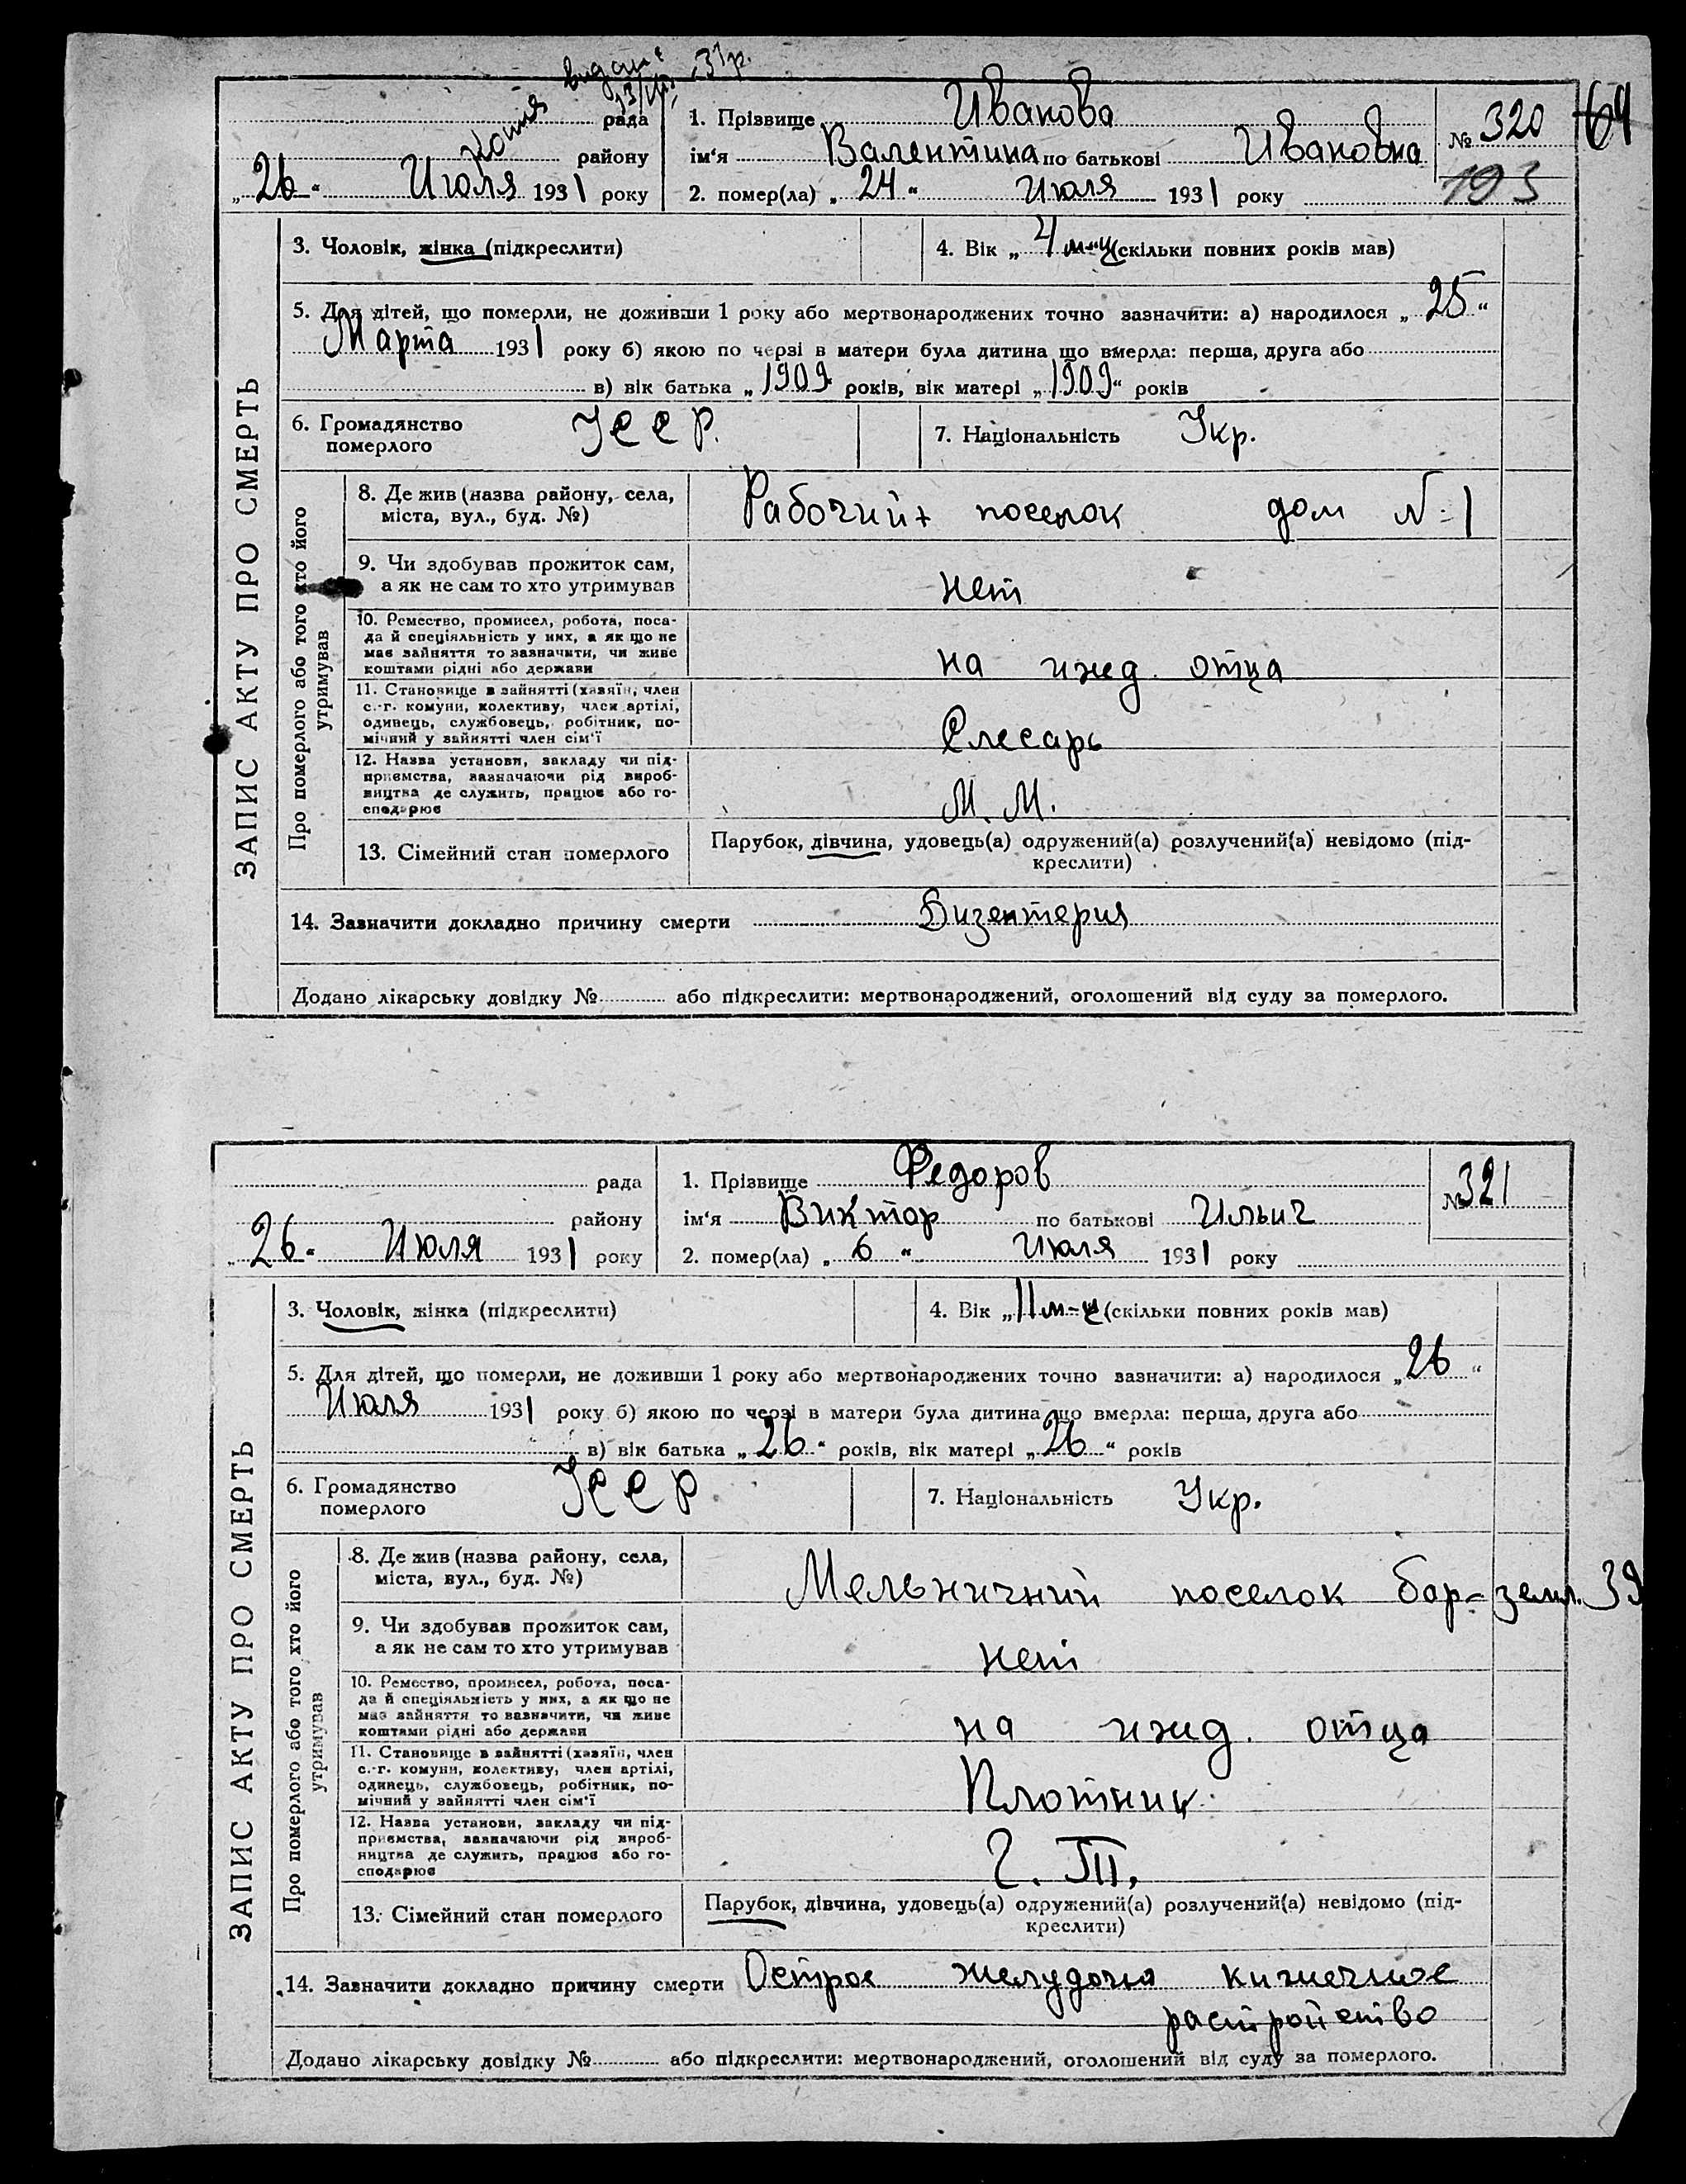 Копія видані
13/VIII 31 р.
рада
району
„26“ Июля 1931 року
1. Прізвище Иванова
ім‘я Валентина по батькові Ивановна
2. помер(ла) „24“ Июля 1931 року
№ 320
64
193
ЗАПИС АКТУ ПРО СМЕРТЬ
3. Чоловік, жінка (підкреслити)
4. Вік „4 м-ц (скільки повних років мав)
5. Для дітей, що померли, не доживши 1 року або мертвонароджених точно зазначити: а) народилося „25“
Марта 1931 року б) якою по черзі в матери була дитина що вмерла: перша, друга або
в) вік батька „1909 років, вік матері „1909“ років
6. Громадянство
померлого
УССР.
7. Національність Укр.
Про померлого або того хто його
утримував
8. Де жив (назва району, села,
міста, вул., буд. №)
Рабочий поселок дом № 1
9. Чи здобував прожиток сам,
а як не сам то хто утримував
нет
10. Ремество, промисел, робота, поса-
да й спеціяльність у них, а як що не
має зайняття то зазначити, чи живе
коштами рідні або держави
на ижд. отца
11. Становище в зайнятті (хазяїн, член
с.-г. комуни, колективу, член артілі,
одинець, службовець, робітник, по-
мічний у зайнятті член сім‘ї
Слесарь
12. Назва установи, закладу чи під-
приємства, зазначаючи рід вироб-
ництва де служить, працює або го-
сподарює
М. М.
13. Сімейний стан померлого
Парубок, дівчина, удовець(а) одружений(а) розлучений(а) невідомо (під-
креслити)
14. Зазначити докладно причину смерти Дизентерия
Додано лікарську довідку № або підкреслити: мертвонароджений, оголошений від суду за померлого.
рада
району
„26“ Июля 1931 року
1. Прізвище Федоров
ім‘я Виктор по батькові Ильич
2. помер(ла) „6“ Июля 1931 року
№ 321
ЗАПИС АКТУ ПРО СМЕРТЬ
3. Чоловік, жінка (підкреслити)
4. Вік „11 м-ц (скільки повних років мав)
5. Для дітей, що померли, не доживши 1 року або мертвонароджених точно зазначити: а) народилося „26“
Июля 1931 року б) якою по черзі в матери була дитина що вмерла: перша, друга або
в) вік батька „26“ років, вік матері „26“ років
6. Громадянство
померлого
УССР
7. Національність Укр.
Про померлого або того хто його
утримував
8. Де жив (назва району, села,
міста, вул., буд. №)
Мельничний поселок бар-земл. 39
9. Чи здобував прожиток сам,
а як не сам то хто утримував
нет
10. Ремество, промисел, робота, поса-
да й спеціяльність у них, а як що не
має зайняття то зазначити, чи живе
коштами рідні або держави
на ижд. отца
11. Становище в зайнятті (хазяїн, член
с.-г. комуни, колективу, член артілі,
одинець, службовець, робітник, по-
мічний у зайнятті член сім‘ї
Плотник
12. Назва установи, закладу чи під-
приємства, зазначаючи рід вироб-
ництва де служить, працює або го-
сподарює
Ч. Т.
13. Сімейний стан померлого
Парубок, дівчина, удовець(а) одружений(а) розлучений(а) невідомо (під-
креслити)
14. Зазначити докладно причину смерти Острое желудочно кишечное
растройство
Додано лікарську довідку № або підкреслити: мертвонароджений, оголошений від суду за померлого.